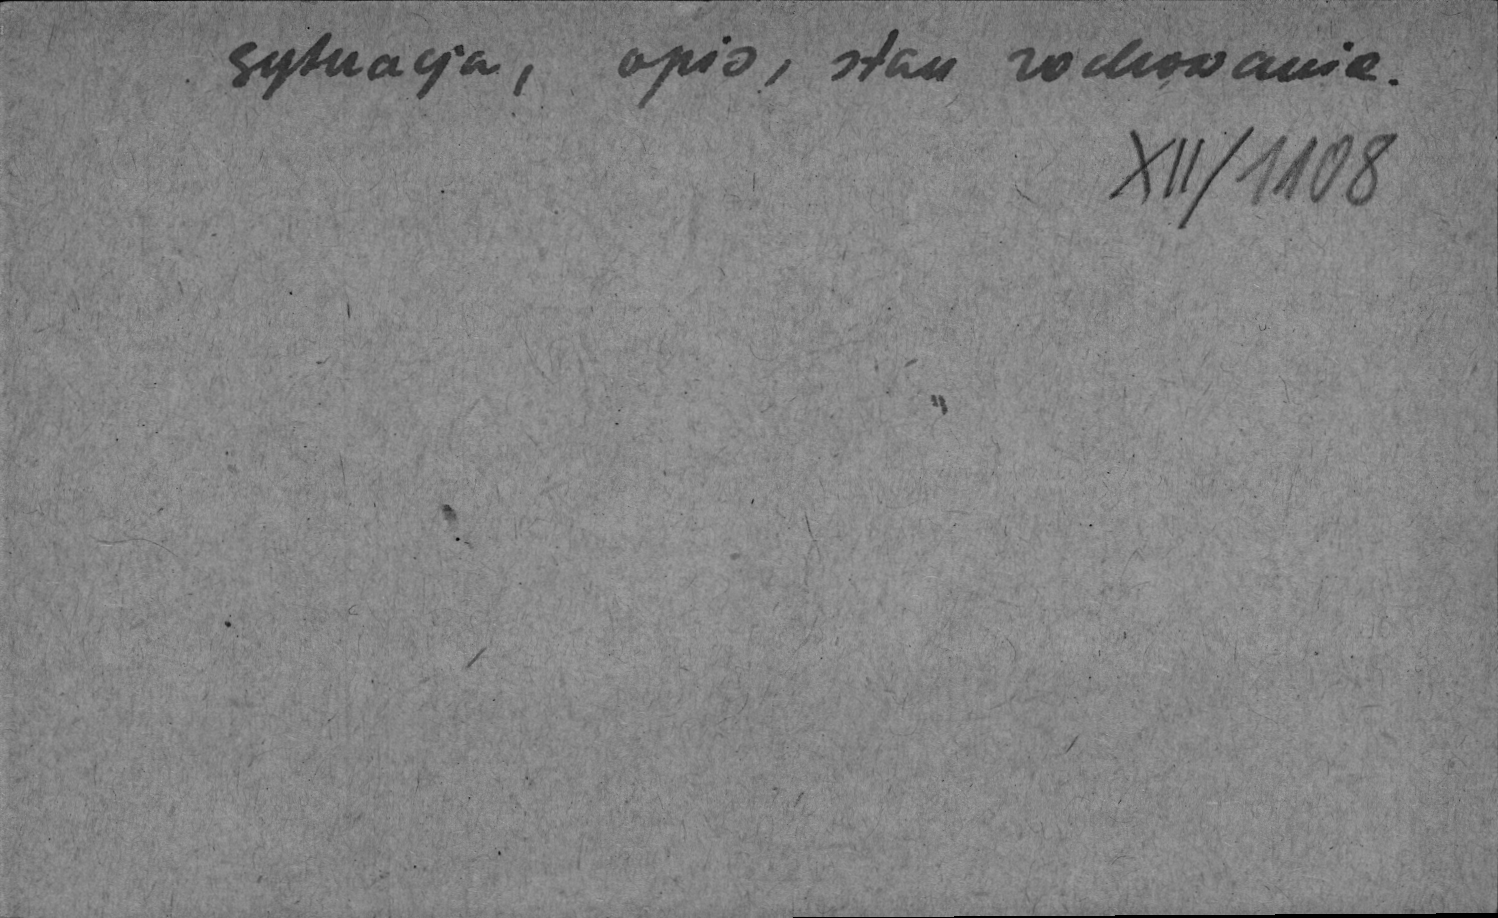 sytuacja, opis, stan zachowania.
XII/1108